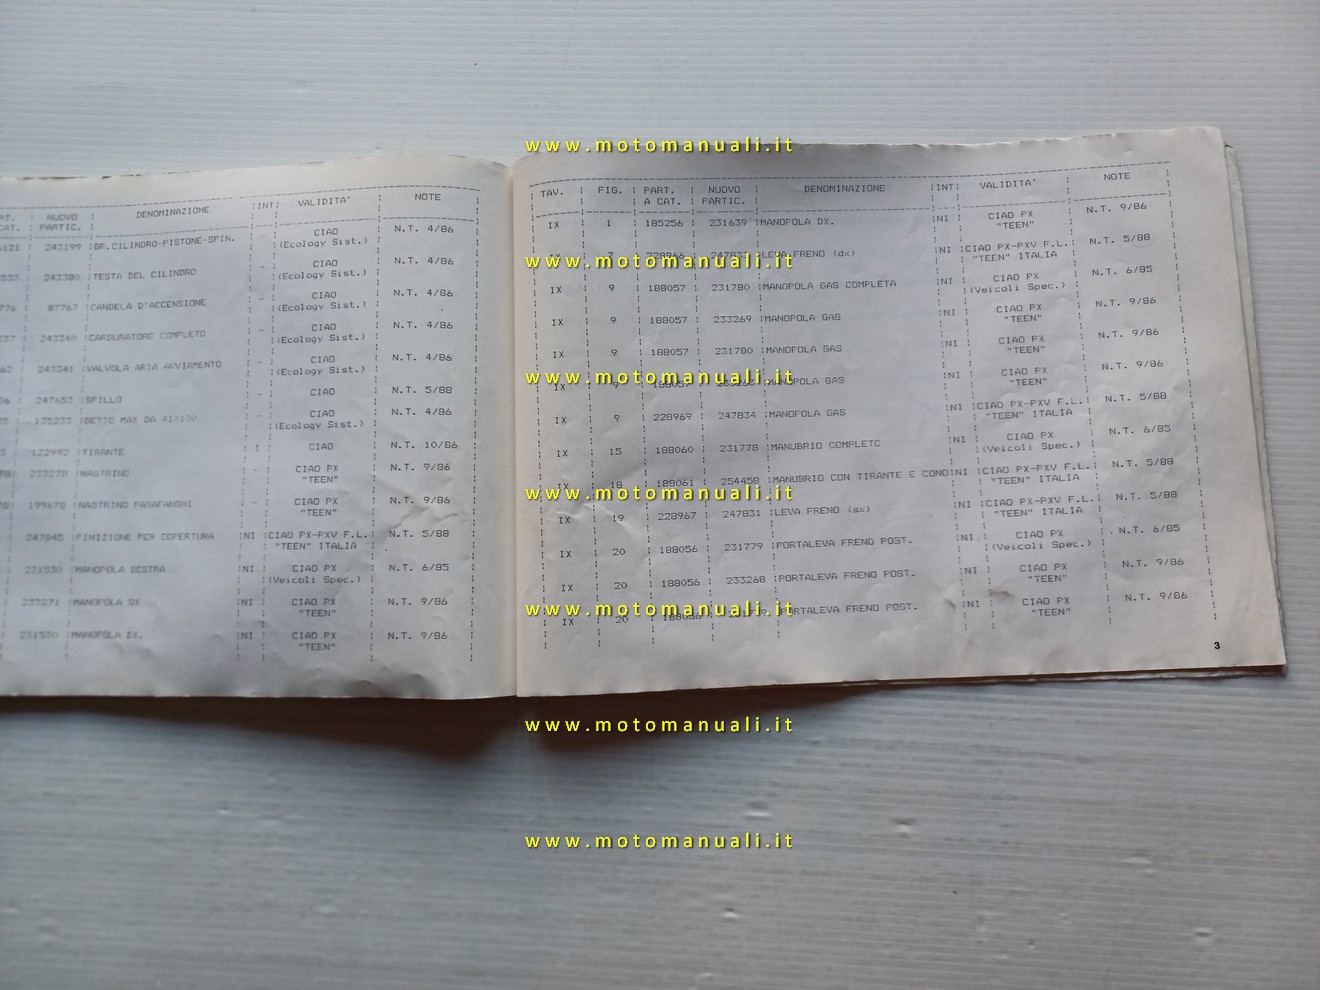 www.motomanuali.it
NUOVO PARTIC. DENOMINAZIONE INT VALIDITA' NOTE
243199 GR.CILINDRO-PISTONE-SPIN. - CIAO (Ecology Sist.) N.T. 4/86
243380 TESTA DEL CILINDRO - CIAO (Ecology Sist.) N.T. 4/86
87767 CANDELA D'ACCENSIONE - CIAO (Ecology Sist.) N.T. 4/86
243340 CARBURATORE COMPLETO - CIAO (Ecology Sist.) N.T. 4/86
243341 VALVOLA ARIA AVVIAMENTO - CIAO (Ecology Sist.) N.T. 4/86
247653 SPILLO - CIAO N.T. 5/88
135233 GETTO MAX DA 41/100 - CIAO (Ecology Sist.) N.T. 4/86
122992 TIRANTE I CIAO N.T. 10/86
233270 NASTRINO - CIAO PX "TEEN" N.T. 9/86
199678 NASTRINO PARAFANGHI - CIAO PX "TEEN" N.T. 9/86
247845 FINIZIONE PER COPERTURA NI CIAO PX-PXV F.L. "TEEN" ITALIA N.T. 5/88
231530 MANOPOLA DESTRA NI CIAO PX (Veicoli Spec.) N.T. 6/85
233271 MANOPOLA DX NI CIAO PX "TEEN" N.T. 9/86
231530 MANOPOLA DX. NI CIAO PX "TEEN" N.T. 9/86
TAV. FIG. PART. A CAT. NUOVO PARTIC. DENOMINAZIONE INT VALIDITA' NOTE
IX 1 185256 231639 MANOPOLA DX. NI CIAO PX "TEEN" N.T. 9/86
LEVA FRENO (dx) NI CIAO PX-PXV F.L. "TEEN" ITALIA N.T. 5/88
www.motomanuali.it
IX 9 188057 231780 MANOPOLA GAS COMPLETA NI CIAO PX (Veicoli Spec.) N.T. 6/85
IX 9 188057 233269 MANOPOLA GAS NI CIAO PX "TEEN" N.T. 9/86
IX 9 188057 231780 MANOPOLA GAS NI CIAO PX "TEEN" N.T. 9/86
IX 9 MANOPOLA GAS NI CIAO PX "TEEN" N.T. 9/86
www.motomanuali.it
IX 9 228969 247834 MANOPOLA GAS NI CIAO PX-PXV F.L. "TEEN" ITALIA N.T. 5/88
IX 15 188060 231778 MANUBRIO COMPLETO NI CIAO PX (Veicoli Spec.) N.T. 6/85
IX 18 188061 254458 MANUBRIO CON TIRANTE E COND NI CIAO PX-PXV F.L. "TEEN" ITALIA N.T. 5/88
www.motomanuali.it
IX 19 228967 247831 LEVA FRENO (sx) NI CIAO PX-PXV F.L. "TEEN" ITALIA N.T. 5/88
IX 20 188056 231779 PORTALEVA FRENO POST. NI CIAO PX (Veicoli Spec.) N.T. 6/85
IX 20 188056 233268 PORTALEVA FRENO POST. NI CIAO PX "TEEN" N.T. 9/86
IX 20 188056 PORTALEVA FRENO POST. NI CIAO PX "TEEN" N.T. 9/86
www.motomanuali.it
3
www.motomanuali.it
www.motomanuali.it